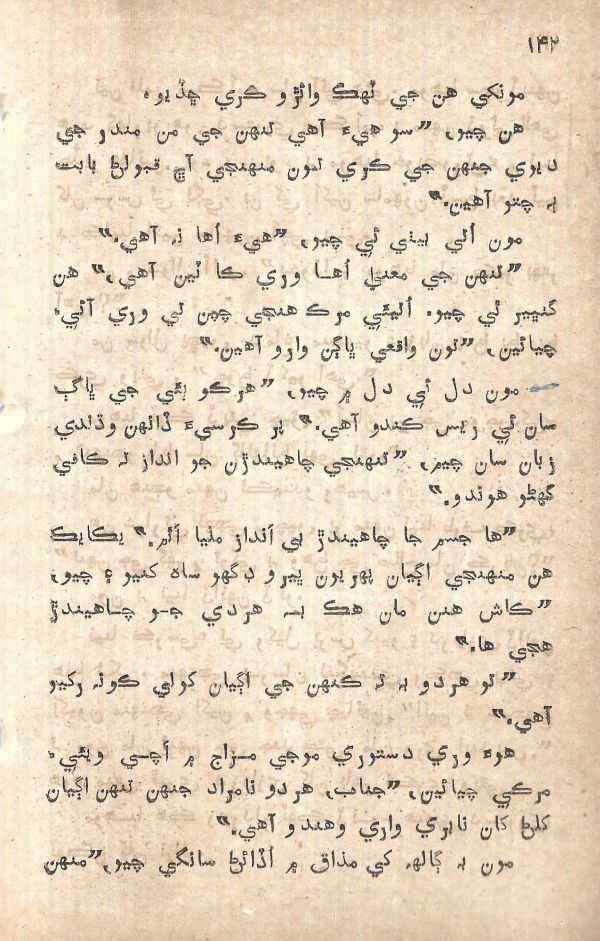 ۱۴۲
مونکي هن جي ٽهڪ وائڙو ڪري ڇڏيو.
هن چيو، ”سو هيءَ آهي تنهن جي من مندر جي
ديوي جنهن جي ڪري تون منهنجي آڇ قبولڻ بابت
ٻه چتو آهين.“
مون اٿي بيٺي ئي چيو، ”هيءَ اُها نه آهي.“
”تنهن جي معنيٰ اُها وري ڪا ٻين آهي،“ هن
گنڀير ٿي چيو. اُليئي مرڪ هنجي چپن تي وري آئي.
چيائين، ”تون واقعي ڀاڳن وارو آهين.“
مون دل ئي دل ۾ چيو، ”هرڪو ٻئي جي ڀاڳ
سان ئي ريس ڪندو آهي.“ پر ڪرسيءَ ڏانهن وڌندي
زبان سان چيم، ”تنهنجي چاهيندڙن جو انداز ته ڪافي
گهڻو هوندو.“
”ها جسم جا چاهيندڙ بي اَنداز مليا اَٿم.“ يڪايڪ
هن منهنجي اڳيان پهريون ڀيرو ڊگهو ساهه کنيو ۽ چيو،
”ڪاش هنن مان هڪ به هردي جو چاهيندڙ
هجي ها.“
”تو هردو به ته ڪنهن جي اڳيان کولي ڪونه رکيو
آهي.“
هوءَ وري دستوري موجي مزاج ۾ اَچي ويئي.
مرڪي چيائين، ”جناب، هردو نامراد جنهن تنهن اڳيان
کلڻ کان نابري واري وهندو آهي.“
مون به ڳالهه کي مذاق ۾ اُڏائڻ سانگي چيو، ”منهن